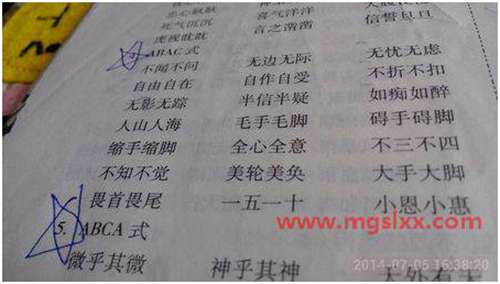 忠心耿耿
死气沉沉 喜气洋洋 信誓旦旦
虎视眈眈 言之凿凿
ABAC 式
不闻不问 无边无际 无忧无虑
自由自在 自作自受 不折不扣
无影无踪 半信半疑 如痴如醉
人山人海 毛手毛脚 碍手碍脚
缩手缩脚 全心全意 不三不四
不知不觉 美轮美奂 大手大脚
畏首畏尾 一五一十 小恩小惠
5. ABCA 式
www.mgslxx.com
微乎其微 神乎其神 天外有天
2014-07-05 16:38:20